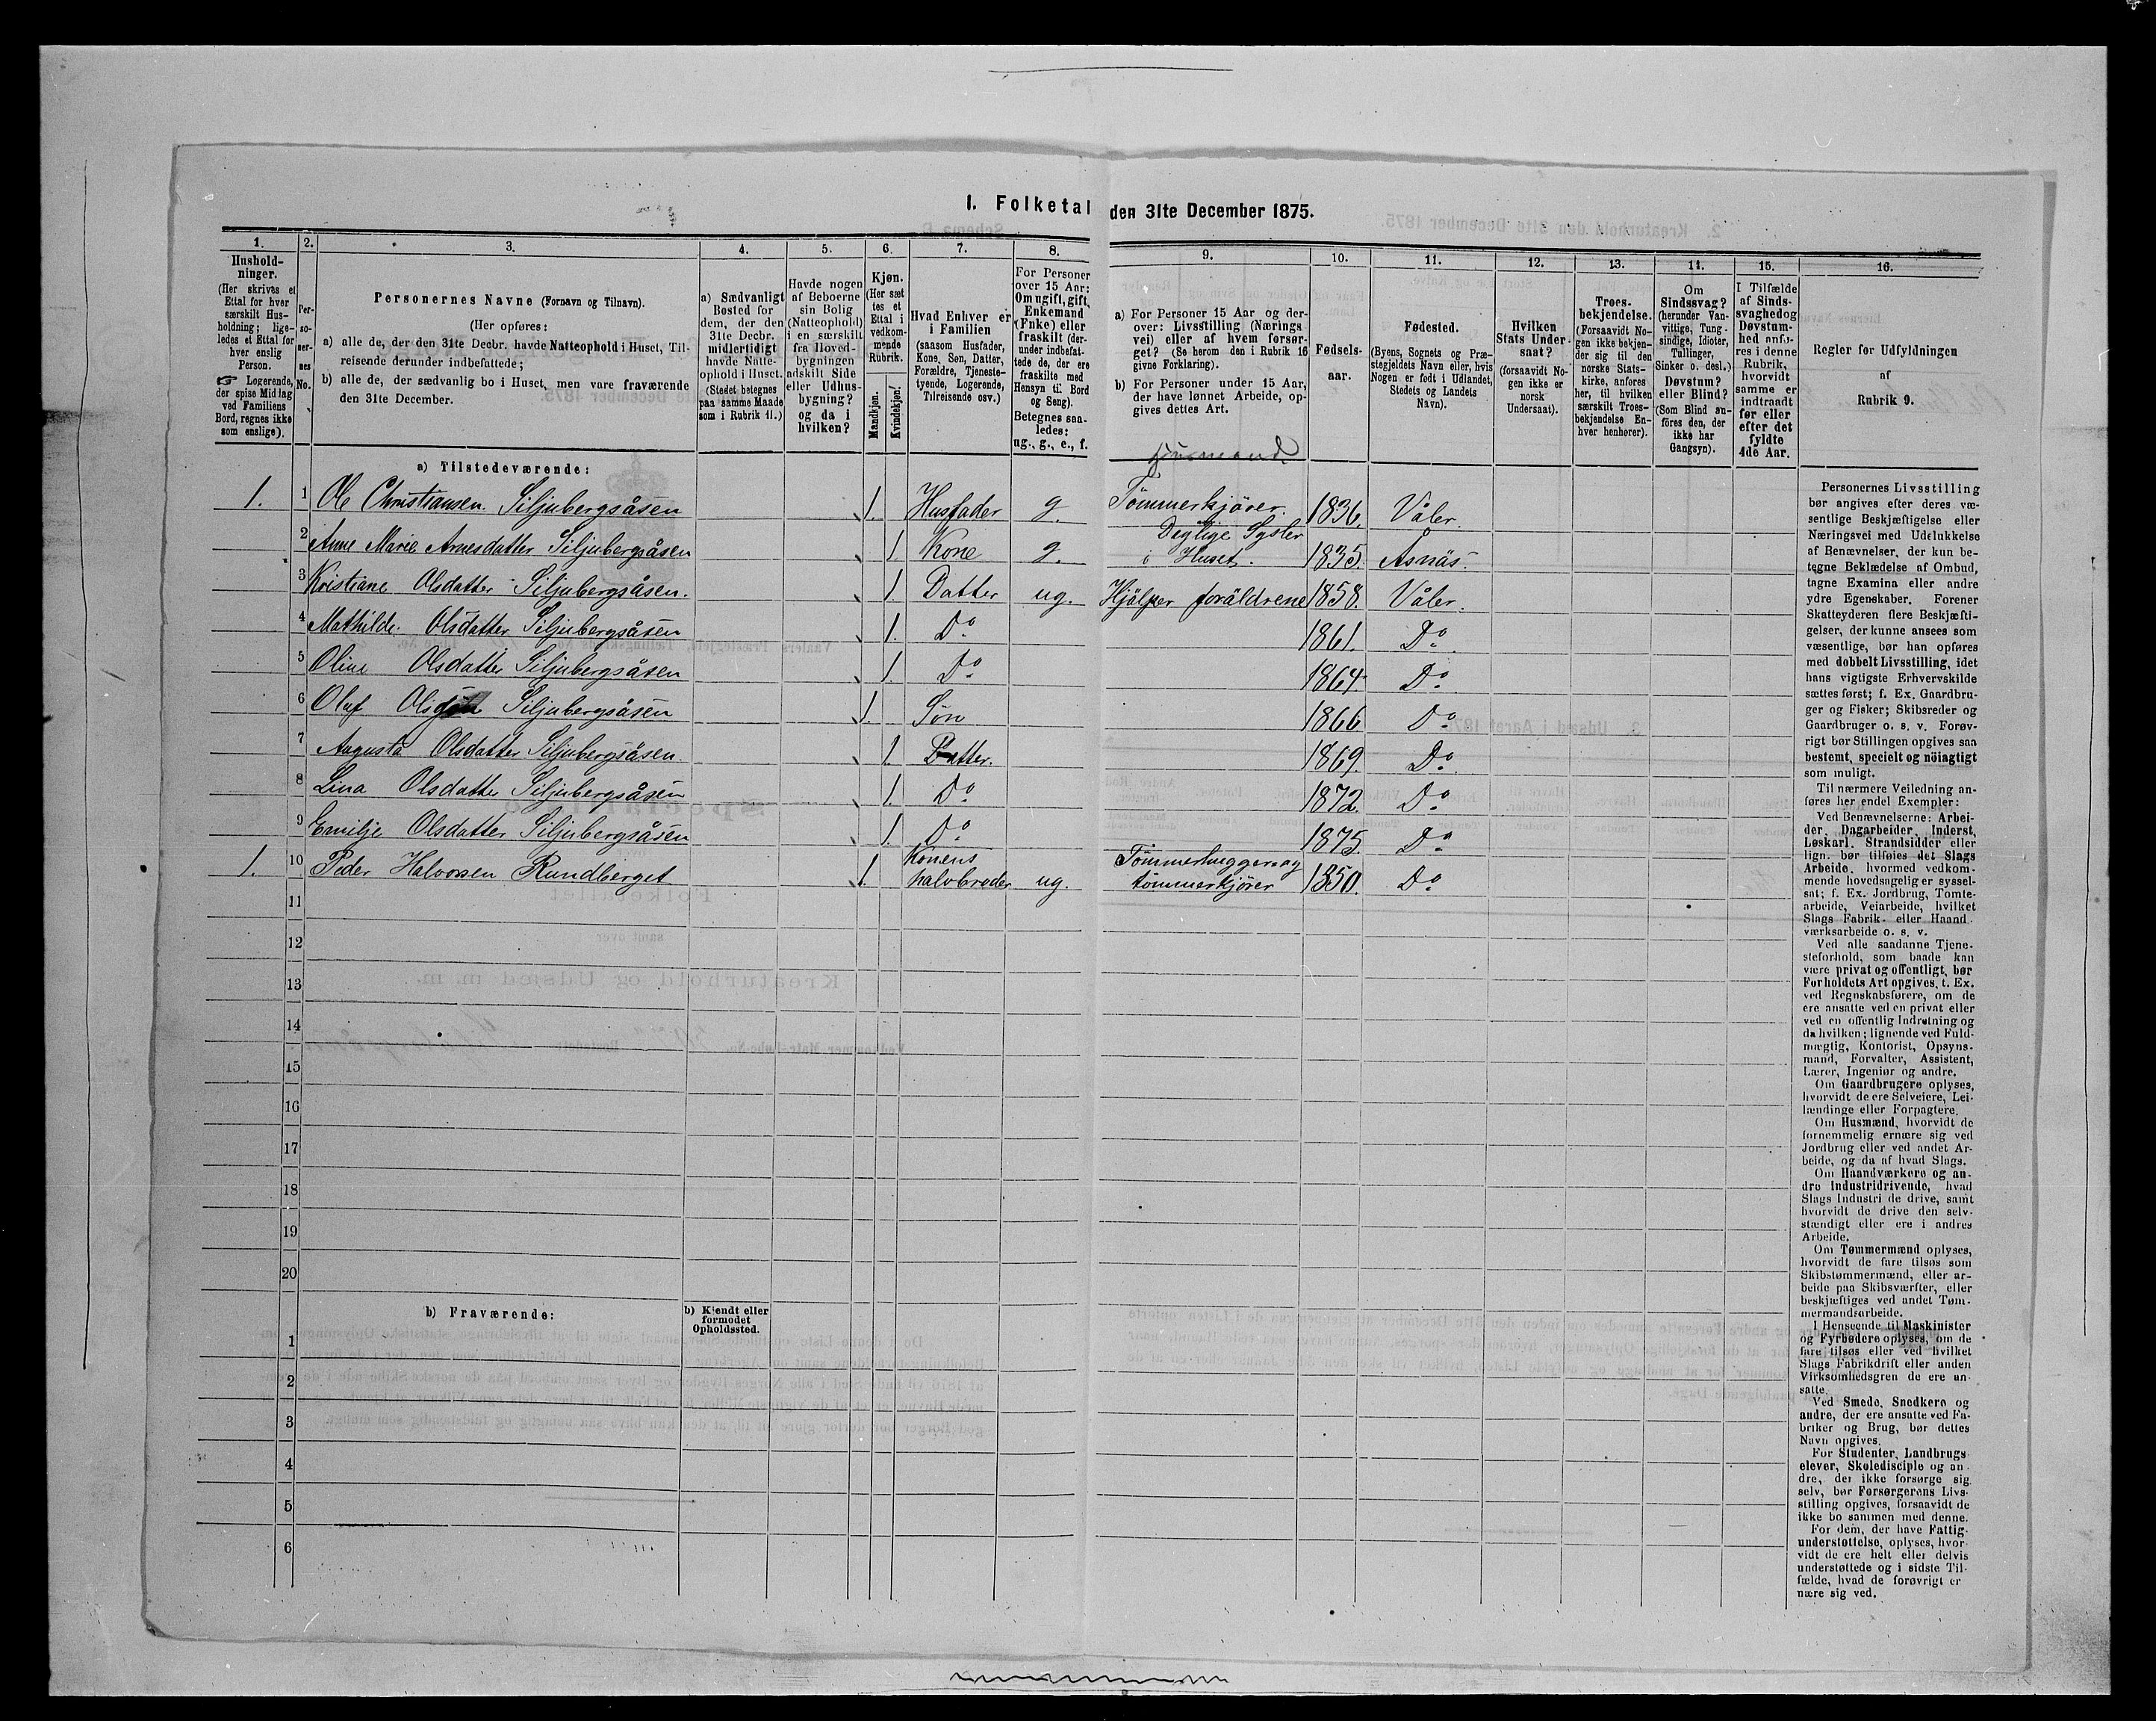 I. Folketal den 31te December 1875.
1. 2. 3. 4. 5. 6. 7. 8. 9. 10. 11. 12. 13. 14. 15. 16.
Hushold-
ninger.
(Her skrives et
Ettal for hver
særskilt Hus-
holdning; lige-
ledes et Ettal for
hver enslig
Person.
☞ Logerende,
der spise Middag
ved Familiens
Bord, regnes ikke
som enslige).
Per-
so-
ner-
nes
No.
Personernes Navne (Fornavn og Tilnavn).
(Her opføres:
a) alle de, der den 31te Decbr. havde Natteophold i Huset, Til-
reisende derunder indbefattede;
b) alle de, der sædvanlig bo i Huset, men vare fraværende
den 31te December.
a) Sædvanligt
Bosted for
dem, der den
31te Decbr.
midlertidigt
havde Natte-
ophold i Huset.
(Stedet betegnes
paa samme Maade
som i Rubrik 11.)
Havde nogen
af Beboerne
sin Bolig
(Natteophold)
i en særskilt
fra Hoved-
bygningen
adskilt Side
eller Udhus-
bygning?
og da i
hvilken?
Kjøn.
(Her sæt
tes et
Ettal i
vedkom-
mende
Rubrik.
Mandkjøn.
Kvindekjøn.
Hvad Enhver er
i Familien
(saasom Husfader,
Kone, Søn, Datter,
Forældre, Tjeneste-
tyende, Logerende,
Tilreisende osv.)
For Personer
over 15 Aar:
Om ugift, gift,
Enkemand
(Enke) eller
fraskilt (der-
under indbefat-
tede de, der ere
fraskilte med
Hensyn til Bord
og Seng).
Betegnes saa-
ledes:
ug., g., e., f.
a) For Personer 15 Aar og der-
over: Livsstilling (Nærings
vei) eller af hvem forsør-
get? (Se herom den i Rubrik 16
givne Forklaring).
b) For Personer under 15 Aar,
der have lønnet Arbeide, op-
gives dettes Art.
Fødsels-
aar.
Fødested.
(Byens, Sognets og Præ-
stegjeldets Navn eller, hvis
Nogen er født i Udlandet,
Stedets og Landets
Navn).
Hvilken
Stats Under-
saat?
(forsaavidt No-
gen ikke er
norsk
Undersaat).
Troes-
bekjendelse.
(Forsaavidt No-
gen ikke bekjen-
der sig til den
norske Stats-
kirke, anføres
her, til hvilken
særskilt Troes-
bekjendelse En-
hver henhører).
Om
Sindssvag?
(herunder Van-
vittige, Tung-
sindige, Idioter,
Tullinger,
Sinker o. desl.)
Døvstum?
eller Blind?
(Som Blind an-
føres den, der
ikke har
Gangsyn).
I Tilfælde
af Sinds-
svaghed og
Døvstum-
hed anfø-
res i denne
Rubrik,
hvorvidt
samme er
indtraadt
før eller
efter det
fyldte
4de Aar.
Regler for Udfyldningen
af
Rubrik 9.
a) Tilstedeværende:
1. 1 Ole Christiansen Siljubergsåsen 1. Husfader g. Tømmerkjører. 1836. Våler.
2 Anne Marie Arnesdatter Siljubergsåsen 1. Kone g. Daglige Sysler i Huset. 1835. Asnäs.
3 Kristiane Olsdatter Siljubergsåsen. 1. Datter ug. Hjälper foräldrene 1858. Våler.
4 Mathilde Olsdatter Siljubergsåsen 1. Do 1861. Do
5 Oline Olsdatter Siljubergsåsen 1. Do 1864 Do
6 Oluf Siljubergsåsen 1. Søn 1866 Do
7 Augusta Olsdatter Siljubergsåsen 1. Datter. 1869. Do
8 Lina Olsdatter Siljubergsåsen 1. Do 1872. Do
9 Emilje Olsdatter Siljubergsåsen 1. Do 1875. Do
1. 10 Peder Halvorsen Rundberget 1. Konens halvbroder ug. Tømmerhugger og tømmerkjører 1850. Do
11
12
13
14
15
16
17
18
19
20
b) Fraværende:
b) Kjendt eller
formodet
Opholdssted.
1
2
3
4
5
6
Personernes Livsstilling
bør angives efter deres væ-
sentlige Beskjæftigelse eller
Næringsvei med Udelukkelse
af Benævnelser, der kun be-
tegne Beklædelse af Ombud,
tagne Examina eller andre
ydre Egenskaber. Forener
Skatteyderen flere Beskjæfti-
gelser, der kunne ansees som
væsentlige, bør han opføres
med dobbelt Livsstilling, idet
hans vigtigste Erhvervskilde
sættes først; f. Ex. Gaardbru-
ger og Fisker; Skibsreder og
Gaardbruger o. s. v. Forøv-
rigt bør Stillingen opgives saa
bestemt, specielt og nöiagtigt
som muligt.
Til nærmere Veiledning an-
føres her endel Exempler:
Ved Benævnelserne: Arbei-
der, Dagarbeider, Inderst,
Løskarl, Strandsidder eller
lign. bør tilføies det Slags
Arbeide, hvormed vedkom-
mende hovedsagelig er syssel-
sat; f. Ex. Jordbrug, Tomte-
arbeide, Veiarbeide, hvilket
Slags Fabrik- eller Haand-
værksarbeide o. s. v.
Ved alle saadanne Tjene-
steforhold, som baade kan
være privat og offentligt, bør
Forholdets Art opgives, t. Ex.
ved Regnskabsførere, om de
ere ansatte ved en privat eller
ved en offentlig Indretning og
da hvilken; lignende ved Fuld-
mægtig, Kontorist, Opsyns-
mand, Forvalter, Assistent,
Lærer, Ingeniør og andre.
Om Gaardbrugere oplyses,
hvorvidt de ere Selveiere, Lei-
lændinge eller Forpagtere.
Om Husmænd, hvorvidt de
fornemmelig ernære sig ved
Jordbrug eller ved andet Ar-
beide, og da af hvad Slags.
Om Haandværkere og an-
dre Industridrivende, hvad
Slags Industri de drive, samt
hvorvidt de drive den selv-
stændigt eller ere i andres
Arbeide.
Om Tømmermænd oplyses,
hvorvidt de fare tilsøs som
Skibstømmermænd, eller ar-
beide paa Skibsværfter, eller
beskjæftiges ved andet Tøm-
mermandsarbeide.
I Henseende til Maskinister
og Fyrbødere oplyses, om de
fare tilsøs eller ved hvilket
Slags Fabrikdrift eller anden
Virksomhedsgren de ere an-
satte.
Ved Smede, Snedkere og
andre, der ere ansatte ved Fa-
briker og Brug, bør dettes
Navn opgives.
For Studenter, Landbrugs-
elever, Skoledisciple og an-
dre, der ikke forsørge sig
selv, bør Forsørgerens Livs-
stilling opgives, forsaavidt de
ikke bo sammen med denne.
For dem, der have Fattig-
understøttelse, oplyses, hvor-
vidt de ere helt eller delvis
understøttede og i sidste Til-
fælde, hvad de forøvrigt er
nære sig ved.